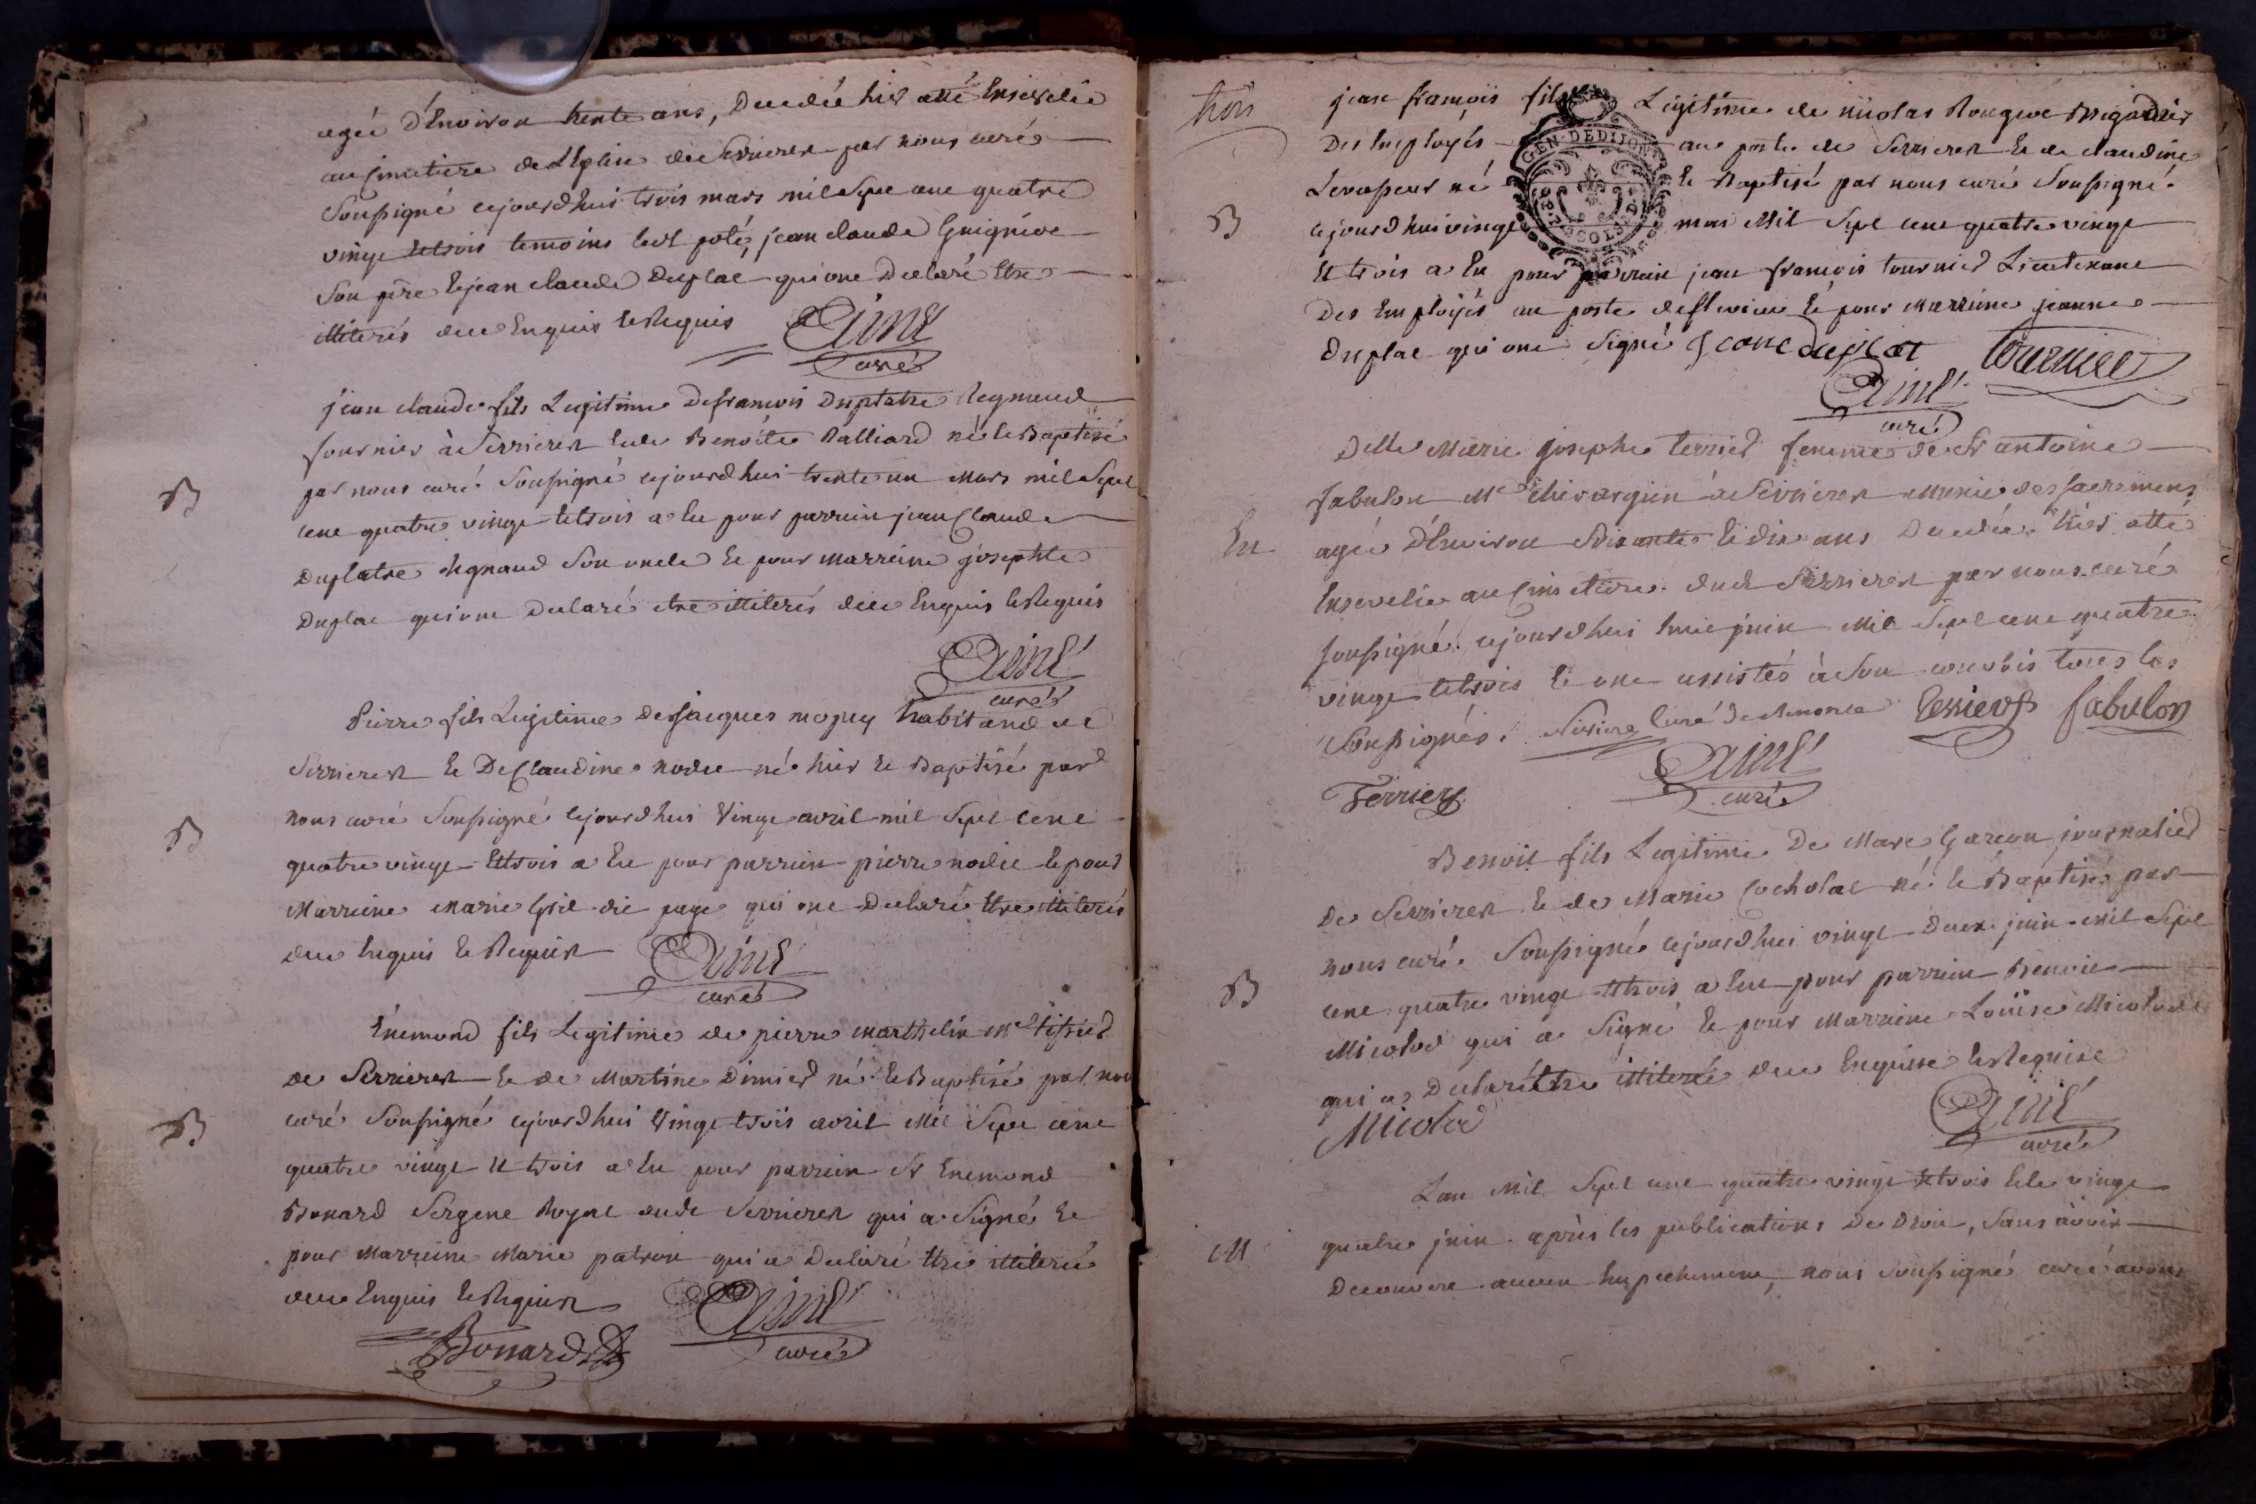 agée d'Environ trente ans, Decedée hier atté Ensevelie
au Cimetiere de L'Eglise de Serrieres par nous curé
Soussigné cejourdhui trois mars mil Sept cent quatre
vingt Et trois temoins led potéz jean claude Guigniére
Son pére Et jean claude Duplat qui ont Declaré Etre
illiterés de ce Enquis Et Requis
Ainé
curé
jean claude fils Legitime De francois Duplatre Regnaud
fournier à Serrieres Et de Benoite Ralliard né Et Baptisé
B
par nous curé Soussigné cejourdhui trente un Mars mil Sept
cent quatre vingt Et trois a Eu pour parrain jean Claude
Duplatre Regnaud Son oncle Et pour marreine josephte
Duplat qui ont Declaré etre illiterés de ce Enquis Et Requis
Ainé
curé
Pierre fils Legitime De jacques habitand de
Serrieres Et De Claudine nodet né hier Et Baptisé par
B
nous curé Soussigné cejourdhui Vingt avril mil Sept cent
quatre vingt Et trois a Eu pour parrain pierre nodet Et pour
Marreine marie dit page qui ont Declaré Etre illiterés
de ce Enquis Et Requis
Ainé
curé
Enemond fils Legitime de pierre Marthelin Me tissier
de Serrieres Et de Martine Dimier né Et Baptisé par nou
B
curé Soussigné cejourdhui Vingt trois avril Mil Sept cent
quatre vingt Et trois a Eu pour parrain Sr Enemond
Bonard Sergent Royal aud Serrieres qui a Signé Et
pour Marreine Marie patron qui a Declaré Etre illiterée
de ce Enquis Et Requis
Bonard
Ainé
curé
trois
jean françois fils Legitime de nicolas Rongeve Brigadier
GEN·DEDIJON
Des Employés au poste de Serrieres Et de claudine
Levasseur né Et Baptisé par nous curé Soussigné
B
cejourdhui vingt mai Mil Sept cent quatre vingt
Et trois a Eu pour parrain jean françois tournier Lieutenant
Des Employés au poste de Et pour Marreine jeanne
Duplat qui ont Signé Jeane duplat tournier
Ainé
curé
Delle Marie josephe terrier femme de Sr antoine
fabulon Me chirurgien à Serrieres Munie des Sacremens
En
agée D'Environ Soixante Et dix ans Decedée hier atté
Ensevelie au Cimetiere dud Serrieres par nous curé
Soussigné cejourdhui huit juin Mil Sept cent quatre
vingt Et trois Et ont assistés à Son convois tous les
Soussignés. Curé De terrier fabulon
Ferrier
Ainé
curé
Benoit fils Legitime De Marc Garçon journalier
De Serrieres Et de Marie Cocholat né Et Baptisé par
nous curé Soussigné cejourdhui vingt Deux juin mil Sept
B
cent quatre vingt Et trois a Eu pour parrain Benoit
Micolod qui a Signé Et pour Marreine Loüise Micolod
qui a Declaré Etre illiterée de ce Enquise Et Requise
Micolod
Ainé
curé
Lan Mil Sept cent quatre vingt Et trois Et le vingt
M
quatre juin après les publications De Droit, Sans avoir
Decouvert aucun Empechement, nous Soussigné curé avons